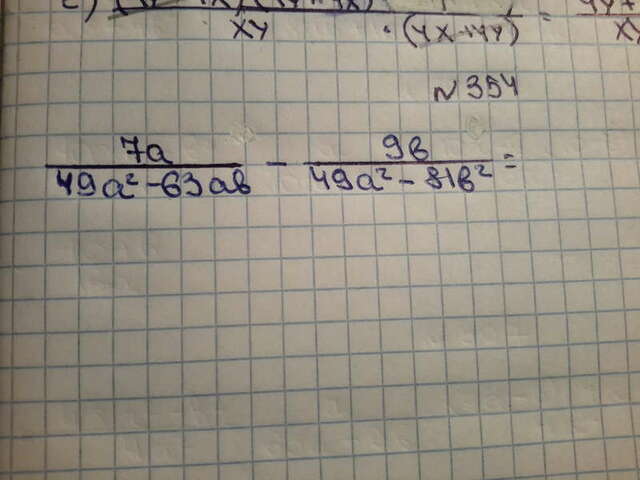 XY · (4X+4Y) =
XY
N 354
7a/(49a² - 63ab) - 9b/(49a² - 81b²) =